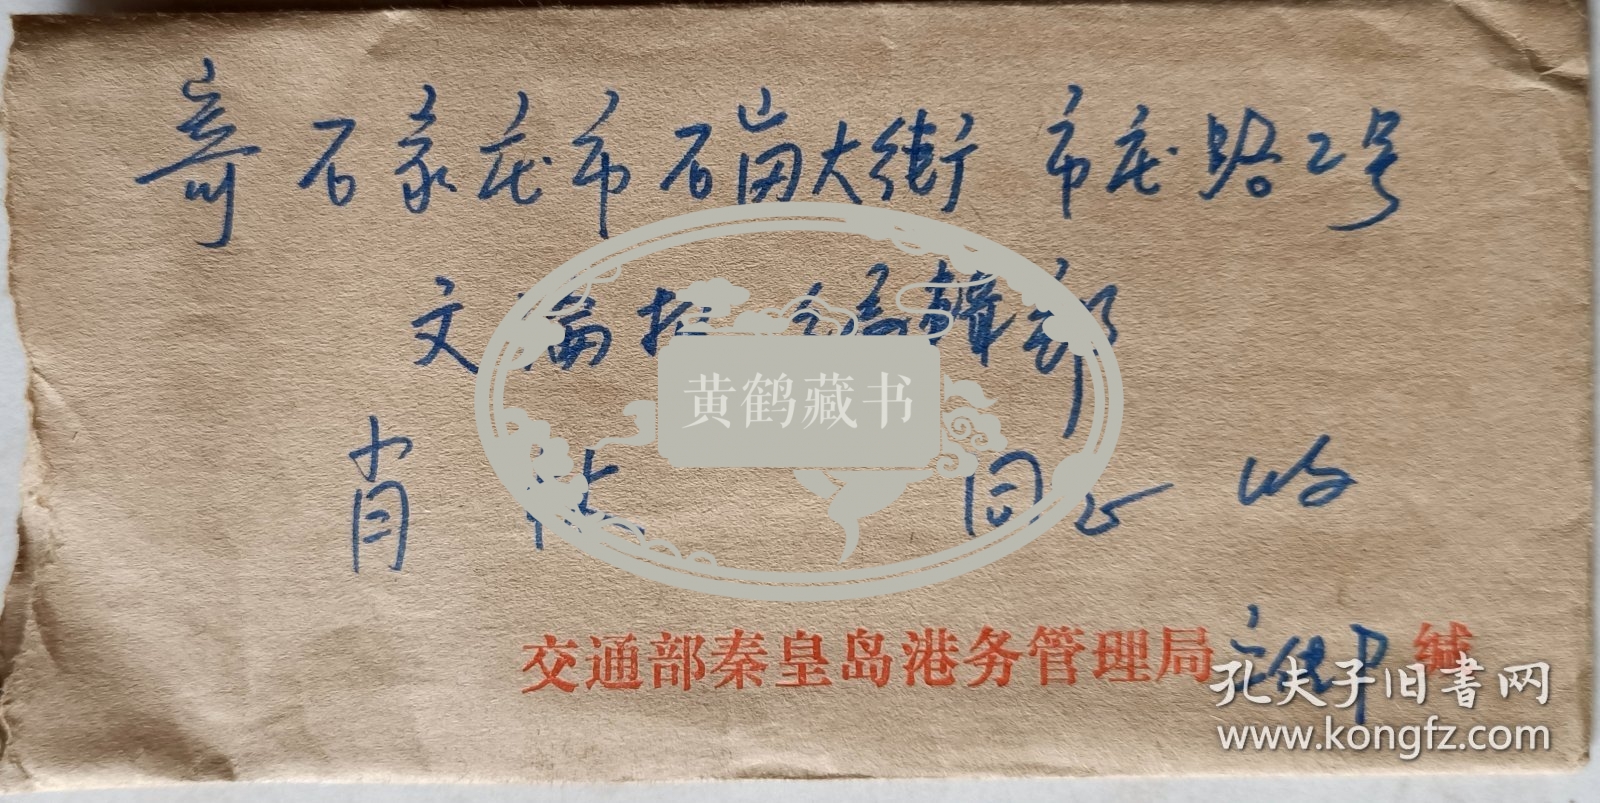 寄 石家庄市石岗大街 市庄路2号
文论报 编辑部
肖 同志 收
黄鹤藏书
交通部秦皇岛港务管理局 缄
孔夫子旧书网
www.kongfz.com